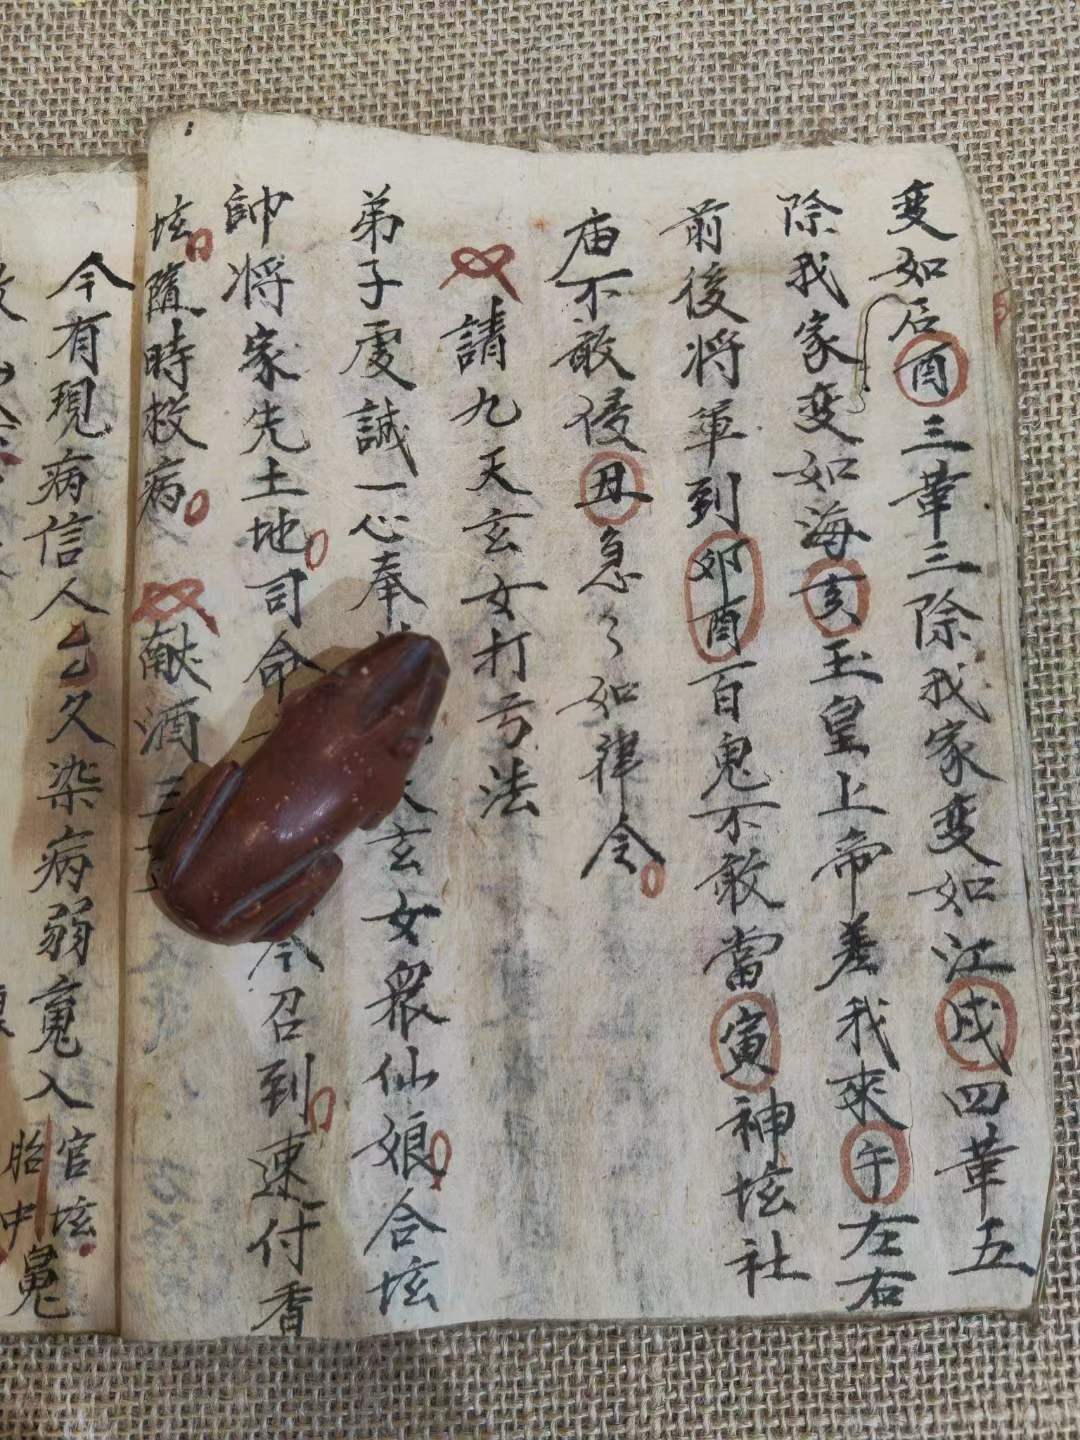 变如后酉三華三除我家变如江戌四華五
除我家变如海亥玉皇上帝差我來午左右
前後将軍到卯酉百鬼不敢當寅神坛社
庙不敢侵丑急々如律令
請九天玄女打亏法
弟子虔誠一心奉 天玄女衆仙娘合坛
帥将家先土地司命 今召到速付香
坛随時救病 献酒三
今有現病信人 久染病弱 入官坛
胎中